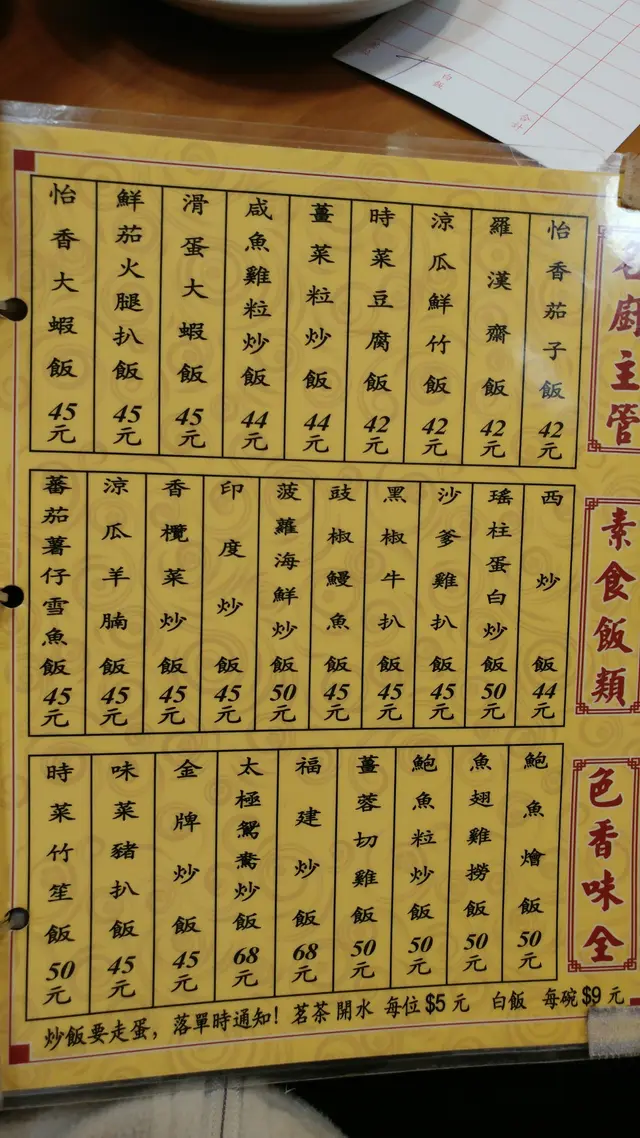 老廚主管
怡香茄子飯 42元
羅漢齋飯 42元
涼瓜鮮竹飯 42元
時菜豆腐飯 42元
薑菜粒炒飯 44元
咸魚雞粒炒飯 44元
滑蛋大蝦飯 45元
鮮茄火腿扒飯 45元
怡香大蝦飯 45元
素食飯類
西炒飯 44元
瑤柱蛋白炒飯 50元
沙爹雞扒飯 45元
黑椒牛扒飯 45元
豉椒鰻魚飯 45元
菠蘿海鮮炒飯 50元
印度炒飯 45元
香欖菜炒飯 45元
涼瓜羊腩飯 45元
蕃茄薯仔雪魚飯 45元
色香味全
鮑魚燴飯 50元
魚翅雞撈飯 50元
鮑魚粒炒飯 50元
薑蓉切雞飯 50元
福建炒飯 68元
太極鴛鴦炒飯 68元
金牌炒飯 45元
味菜豬扒飯 45元
時菜竹笙飯 50元
炒飯要走蛋，落單時通知！茗茶開水 每位$5元 白飯 每碗$9元